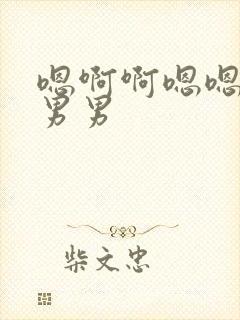 嗯啊啊嗯嗯
男男
柴文忠